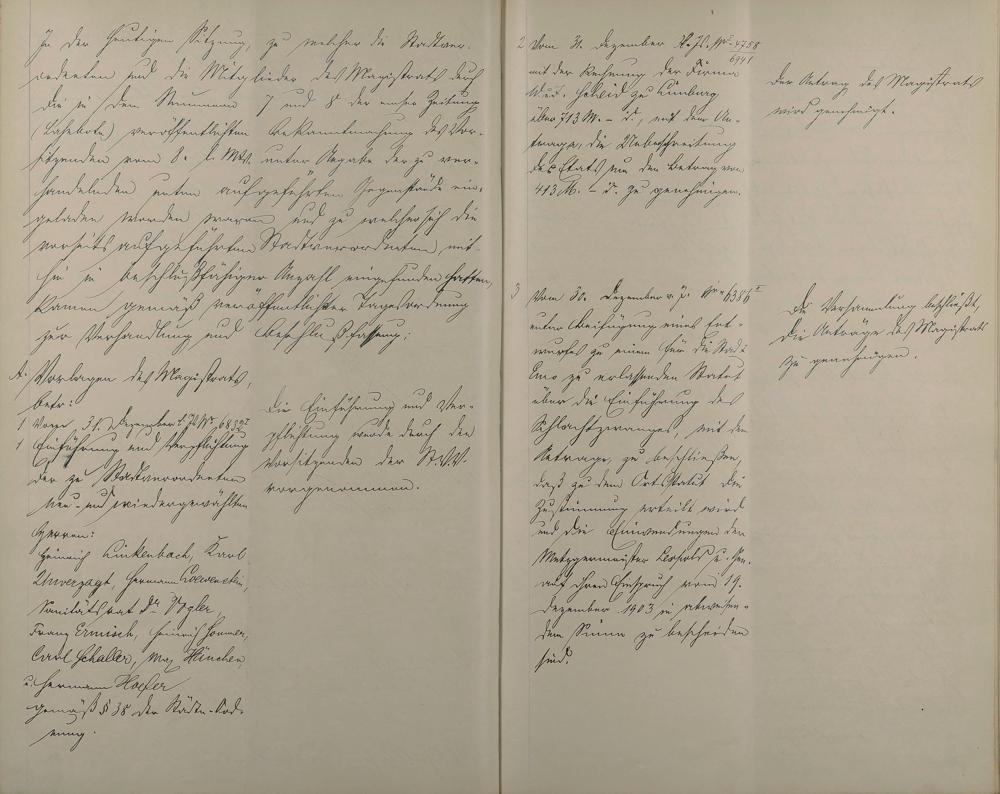 In der heutigen Sitzung, zu welcher die Stadtver-
ordneten und die Mitglieder des Magistrats durch
die in den Nummern 7 und 8 der Emser Zeitung
(Lahnbote) veröffentlichten Bekanntmachung des Vor-
sitzenden vom 8. l. Mts. unter Angabe der zu ver-
handelnden unten aufgeführten Gegenstände ein-
geladen worden waren und zu welcher sich die
vorseits aufgeführten Stadtverordneten, mit-
hin in beschlußfähiger Anzahl eingefunden hatten,
kamen gemäß veröffentlichter Tagesordnung
zur Verhandlung und Beschlußfassung:
A. Vorlagen des Magistrats,
betr:
1 Vom 31. Dezember Nr. 6832 I
1 Einführung und Verpflichtung
der zu Stadtverordneten
neu- und wiedergewählten
Herren:
Heinrich Linkenbach, Karl
Unverzagt, Hermann Loewenstein,
Sanitätsrat Dr. Vogler,
Franz Ermisch, Heinrich Sommer,
Carl Schaller, Max Hünchen,
u. Hermann Hoefer
gemäß § 38 der Städte-Ord-
nung.
Die Einführung und Ver-
pflichtung wurde durch den
Vorsitzenden der St.V.V.
vorgenommen.
2 Vom 31. Dezember v. Js. Nr. 4758/6941
mit der Rechnung der Firma
Wwe. Scheid zu Limburg
über 713 M. - d., mit dem An-
trage, die Ueberschreitung
des Etats um den Betrag von
413 M. - d. zu genehmigen.
Der Antrag des Magistrats
wird genehmigt.
3 Vom 30. Dezember v. J. Nr. 6386 II
unter Beifügung eines Ent-
wurfes zu einem für die Stadt
Ems zu erlassenden Statut
über die Einführung des
Schlachtzwanges, mit dem
Antrage, zu beschließen,
daß zu dem Ortsstatut die
Zustimmung erteilt wird
und die Einwendungen der
Metzgermeister u. Gen.
auf ihren Einspruch vom 19.
Dezember 1903 in abweisen-
dem Sinne zu bescheiden
sind.
Die Versammlung beschließt,
die Anträge des Magistrats
zu genehmigen.